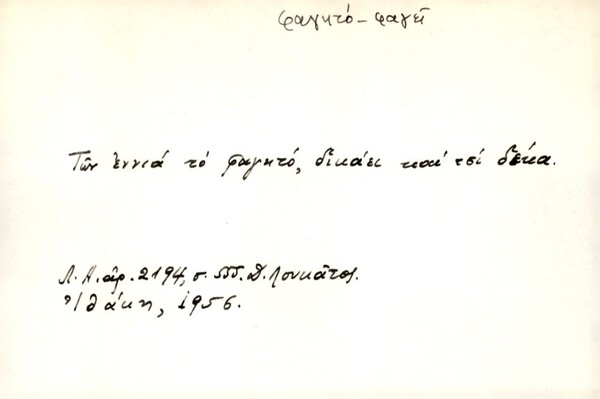 φαγητό – φαγεῖ
Τῶν ἐννιά τό φαγητό, δικάει καί τσί δέκα.
Λ. Α. ἀρ. 2194, σ. 555. Δ. Λουκᾶτος.
Ἰθάκη, 1956.